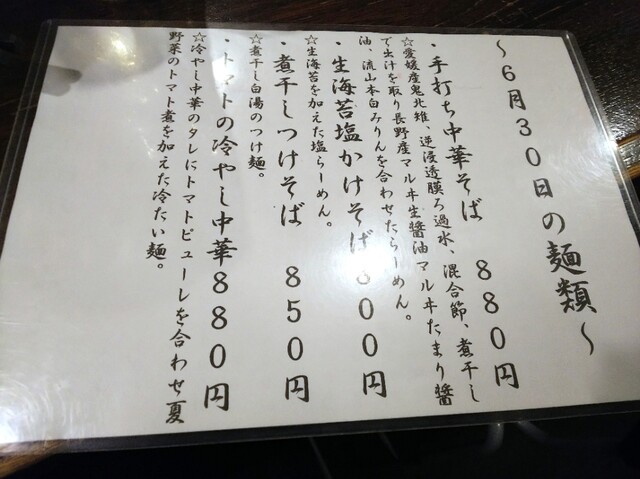 ～６月３０日の麺類～
・手打ち中華そば　８８０円
☆愛媛産鬼北雉、逆浸透膜ろ過水、混合節、煮干し
で出汁を取り長野産マルヰ生醤油マルヰたまり醤
油、流山本白みりんを合わせたらーめん。
・生海苔塩かけそば８００円
☆生海苔を加えた塩らーめん。
・煮干しつけそば　８５０円
☆煮干し白湯のつけ麺。
・トマトの冷やし中華８８０円
☆冷やし中華のタレにトマトピューレを合わせ夏
野菜のトマト煮を加えた冷たい麺。